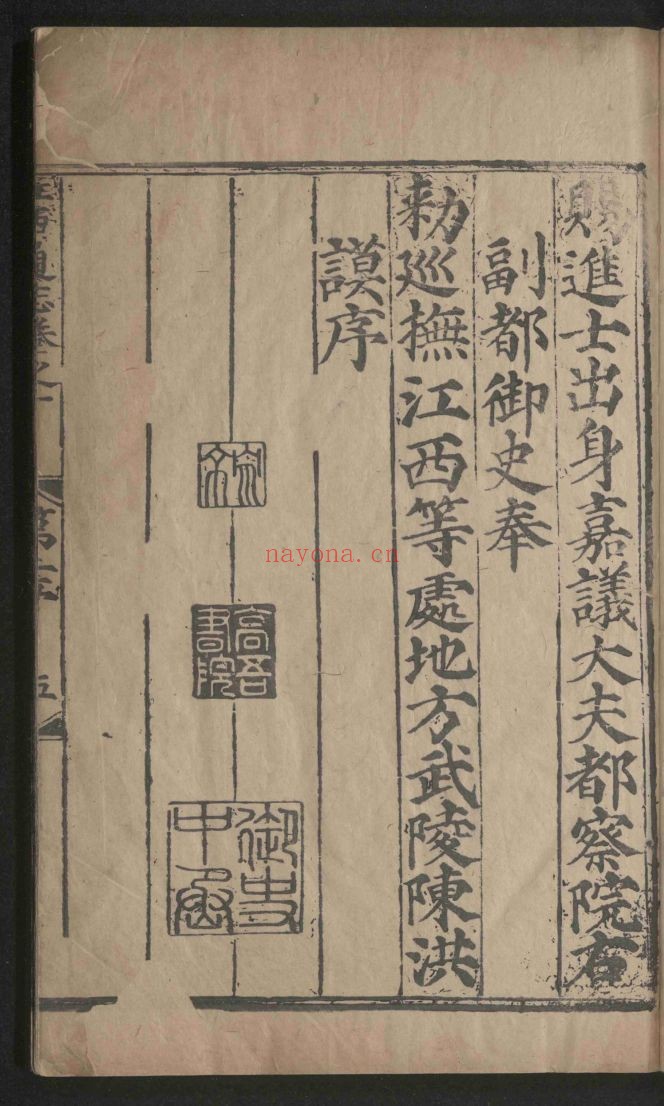 賜進士出身嘉議大夫都察院右
副都御史奉
勑巡撫江西等處地方武陵陳洪
謨序
高吾書院
御史中丞
五
nayona.cn